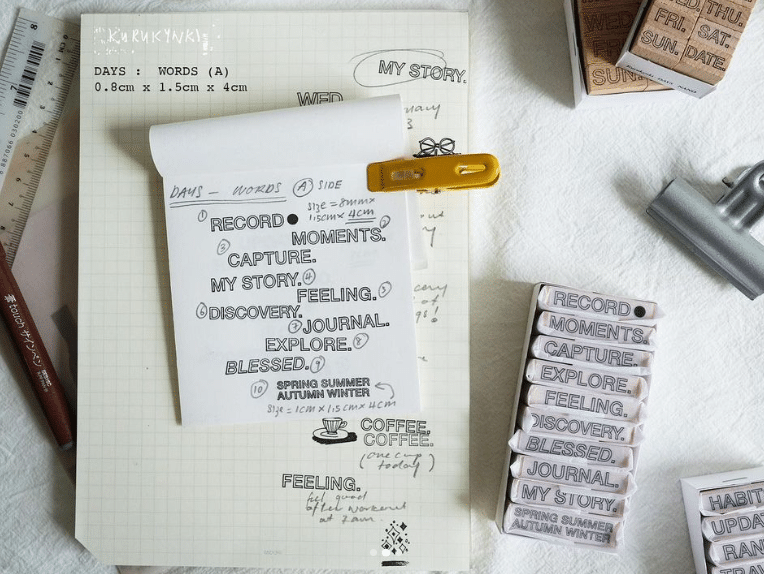 KURUKYNKI
DAYS :  WORDS (A)
0.8cm x 1.5cm x 4cm
MY STORY.
WED
3
DAYS – WORDS (A) SIDE
SIZE = 8mm x
1.5cm x 4cm
① RECORD●
② MOMENTS.
③ CAPTURE.
MY STORY. ④
FEELING. ⑤
⑥ DISCOVERY.
⑦ JOURNAL.
EXPLORE. ⑧
BLESSED. ⑨
⑩ SPRING SUMMER
AUTUMN WINTER
SIZE = 1cm x 1.5cm x 4cm
COFFEE.
COFFEE.
(one cup
today)
FEELING.
feel good
after workout
at 7am.
RECORD●
MOMENTS.
CAPTURE.
EXPLORE.
FEELING.
DISCOVERY.
BLESSED.
JOURNAL.
MY STORY.
SPRING SUMMER
AUTUMN WINTER
WED. THU.
FRI. SAT.
SUN. DATE.
WED
SUN.
HABIT
UPDA
RAN
TRAV
touch
7
8